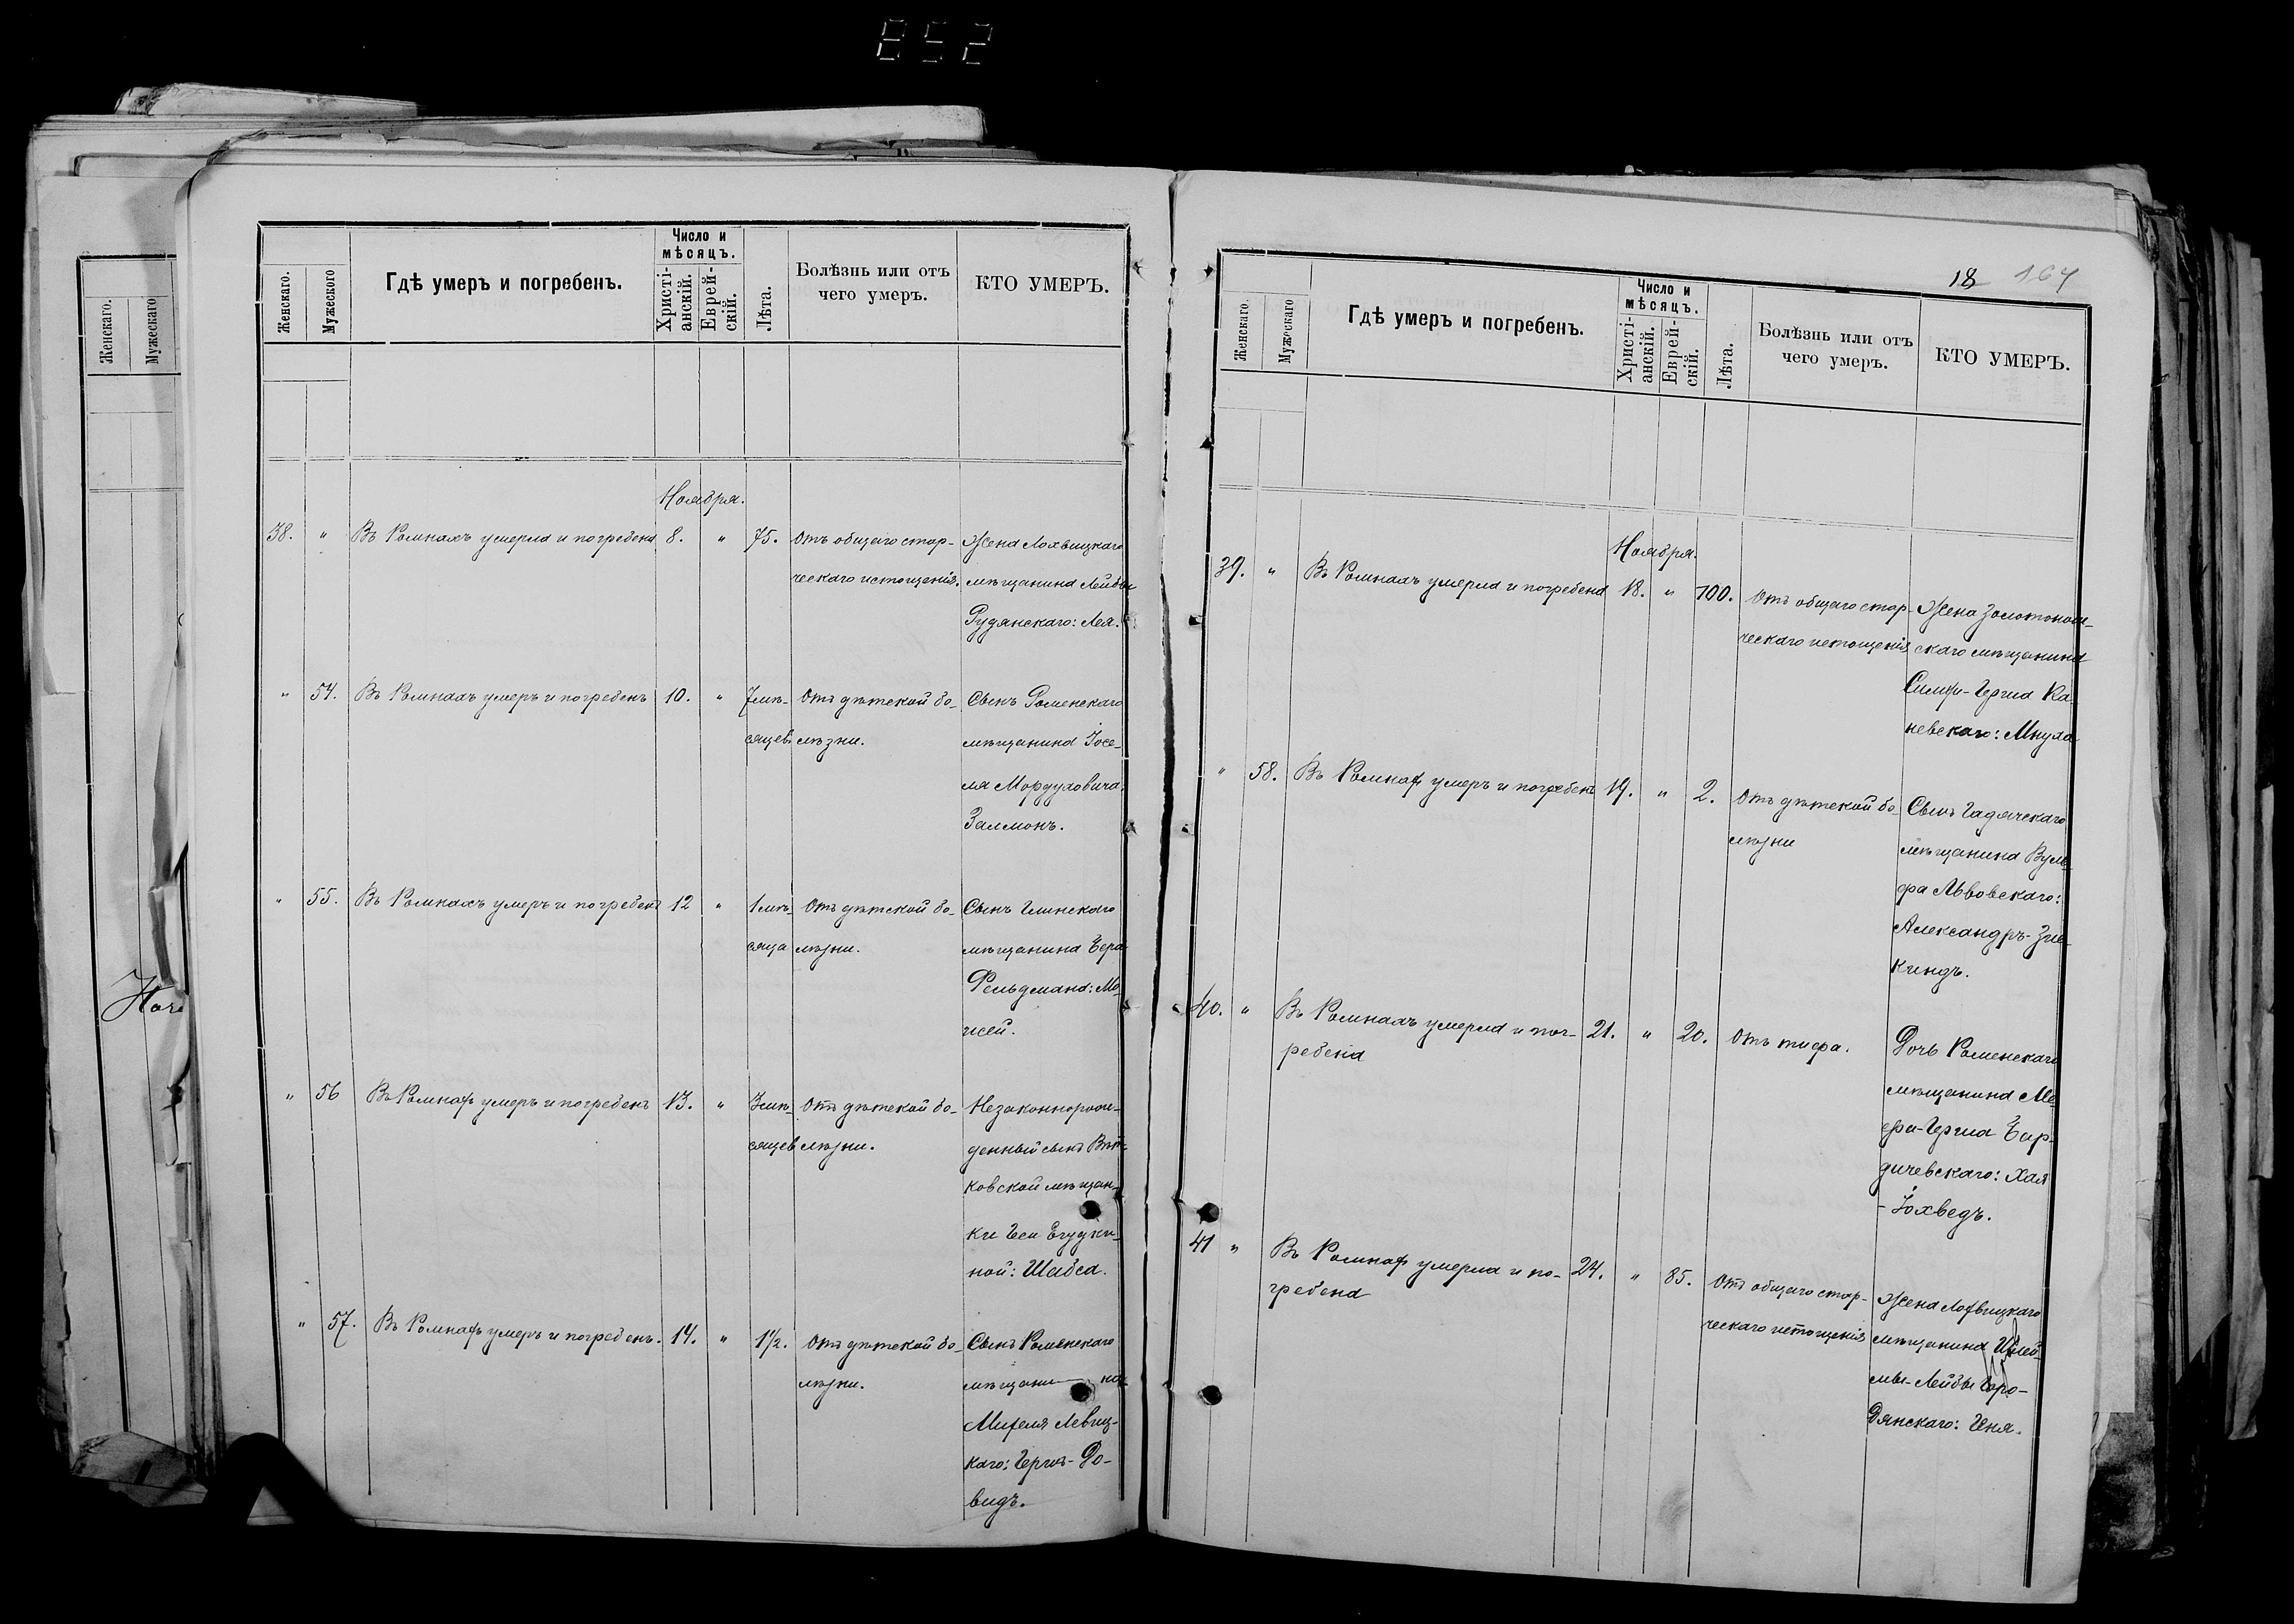 852
Женскаго.
Мужескаго
Женскаго.
Мужеского
Гдѣ умеръ и погребенъ.
Число и
мѣсяцъ.
Христі-
анскій.
Еврей-
скій.
Лѣта.
Болѣзнь или отъ
чего умеръ.
КТО УМЕРЪ.
Ноября.
38. " Въ Ромнахъ умерла и погребена 8. " 75. Отъ общаго стар- Жена Лохвицкаго
ческаго истощенія. мѣщанина Лейбы
Рудянскаго: Лея.
" 54. Въ Ромнахъ умеръ и погребенъ 10. " 7 мѣ- Отъ дѣтской бо- Сынъ Роменскаго
сяцевъ лѣзни. мѣщанина Іосе-
ля Мордуховича:
Залмонъ.
" 55. Въ Ромнахъ умеръ и погребенъ 12 " 1 мѣ- Отъ дѣтской бо- Сынъ Глинскаго
сяца лѣзни. мѣщанина Бера
Фельдмана: Мо-
исей.
" 56 Въ Ромнахъ умеръ и погребенъ 13. " 3 мѣ- Отъ дѣтской бо- Незаконнорож-
сяцев лѣзни. денный сынъ
ковской мѣщан-
ки Геи
ной: Шабса.
" 57. Въ Ромнахъ умеръ и погребенъ. 14. " 1½. Отъ дѣтской бо- Сынъ Роменскаго
лѣзни. мѣщани— на
Михеля Левиц-
каго: Гершъ-До-
видъ.
18 164
Женскаго.
Мужескаго
Гдѣ умеръ и погребенъ.
Число и
мѣсяцъ.
Христі-
анскій.
Еврей-
скій.
Лѣта.
Болѣзнь или отъ
чего умеръ.
КТО УМЕРЪ.
Ноября.
39. " Въ Ромнахъ умерла и погребена 18. " 100. Отъ общаго стар- Жена Золотонош-
ческаго истощенія скаго мѣщанина
Герша Ка-
невскаго: Мнуха
" 58. Въ Ромнахъ умеръ и погребенъ 19. " 2. Отъ дѣтской бо- Сынъ Гадячскаго
лѣзни мѣщанина Вуль-
фа Львовскаго:
Александръ-Зис-
киндъ.
40. " Въ Ромнахъ умерла и пог- 21. " 20. Отъ тифа. Дочь Роменскаго
ребена мѣщанина Ме-
ера-Герша Бер-
дичевскаго: Хая
- Іохведъ.
41 " Въ Ромнахъ умерла и по- 24. " 85. Отъ общаго стар- Жена Лохвицкаго
гребена ческаго истощенія мѣщанина Шлей-
мы-Лейбы Горо-
дянскаго: Геня.